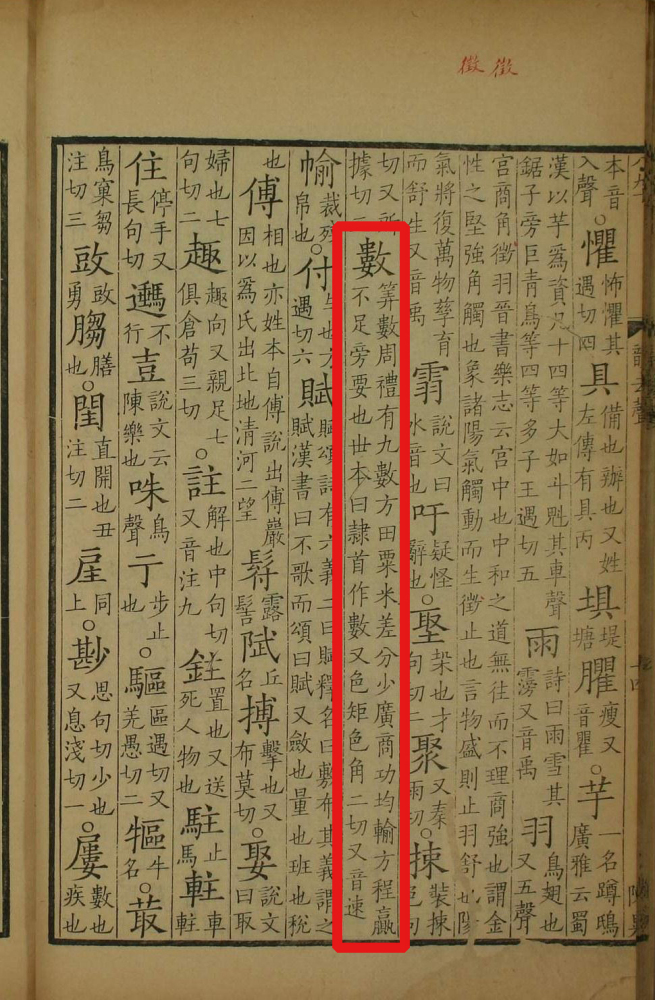 本音入聲○懼怖懼其遇切四具備也辦也又姓左傳有具丙埧堤塘臞瘦又音瞿○芋一名蹲鴟廣雅云蜀
漢以芋為資凡十四等大如斗魁其車聲鋸子旁巨青鳥等四等多子王遇切五雨詩曰雨雪其霶又音禹羽鳥翅也又五聲
宮商角徵羽晉書樂志云宮中也中和之道無往而不理商強也謂金性之堅強角觸也象諸陽氣觸動而生徵止也言物盛則止羽舒也陽
氣將復萬物孳育而舒生又音禹䨞說文曰水音也吁疑怪辭也○埾埾也才句切二聚又秦雨切○捒裝捒色句
切又所據切二數筭數周禮有九數方田粟米差分少廣商功均輸方程贏不足旁要也世本曰隸首作數又色矩色角二切又音速
㡏裁殘帛也○付与也方遇切六賦賦頌詩有六義二曰賦釋名曰敷布其義謂之賦漢書曰不歌而頌曰賦又斂也量也班也稅
也傅相也亦姓本自傅說出傅巖因以為氏出北地清河二望露髻丘名搏擊也又布莫切○娶說文曰取
婦也七句切二趣趣向又親足七俱倉苟三切○註解也中句切又音注九鉒置也又送死人物也駐止馬軴車軴
住停手又長句切不行壴說文云陳樂也咮鳥聲亍步止也○驅區遇切又羌愚切二牛名○菆
鳥窠芻注切三勇䐢膳也○閏直開也丑注切二同上尠思句切少也又息淺切一○屢數也疾也
徵徵